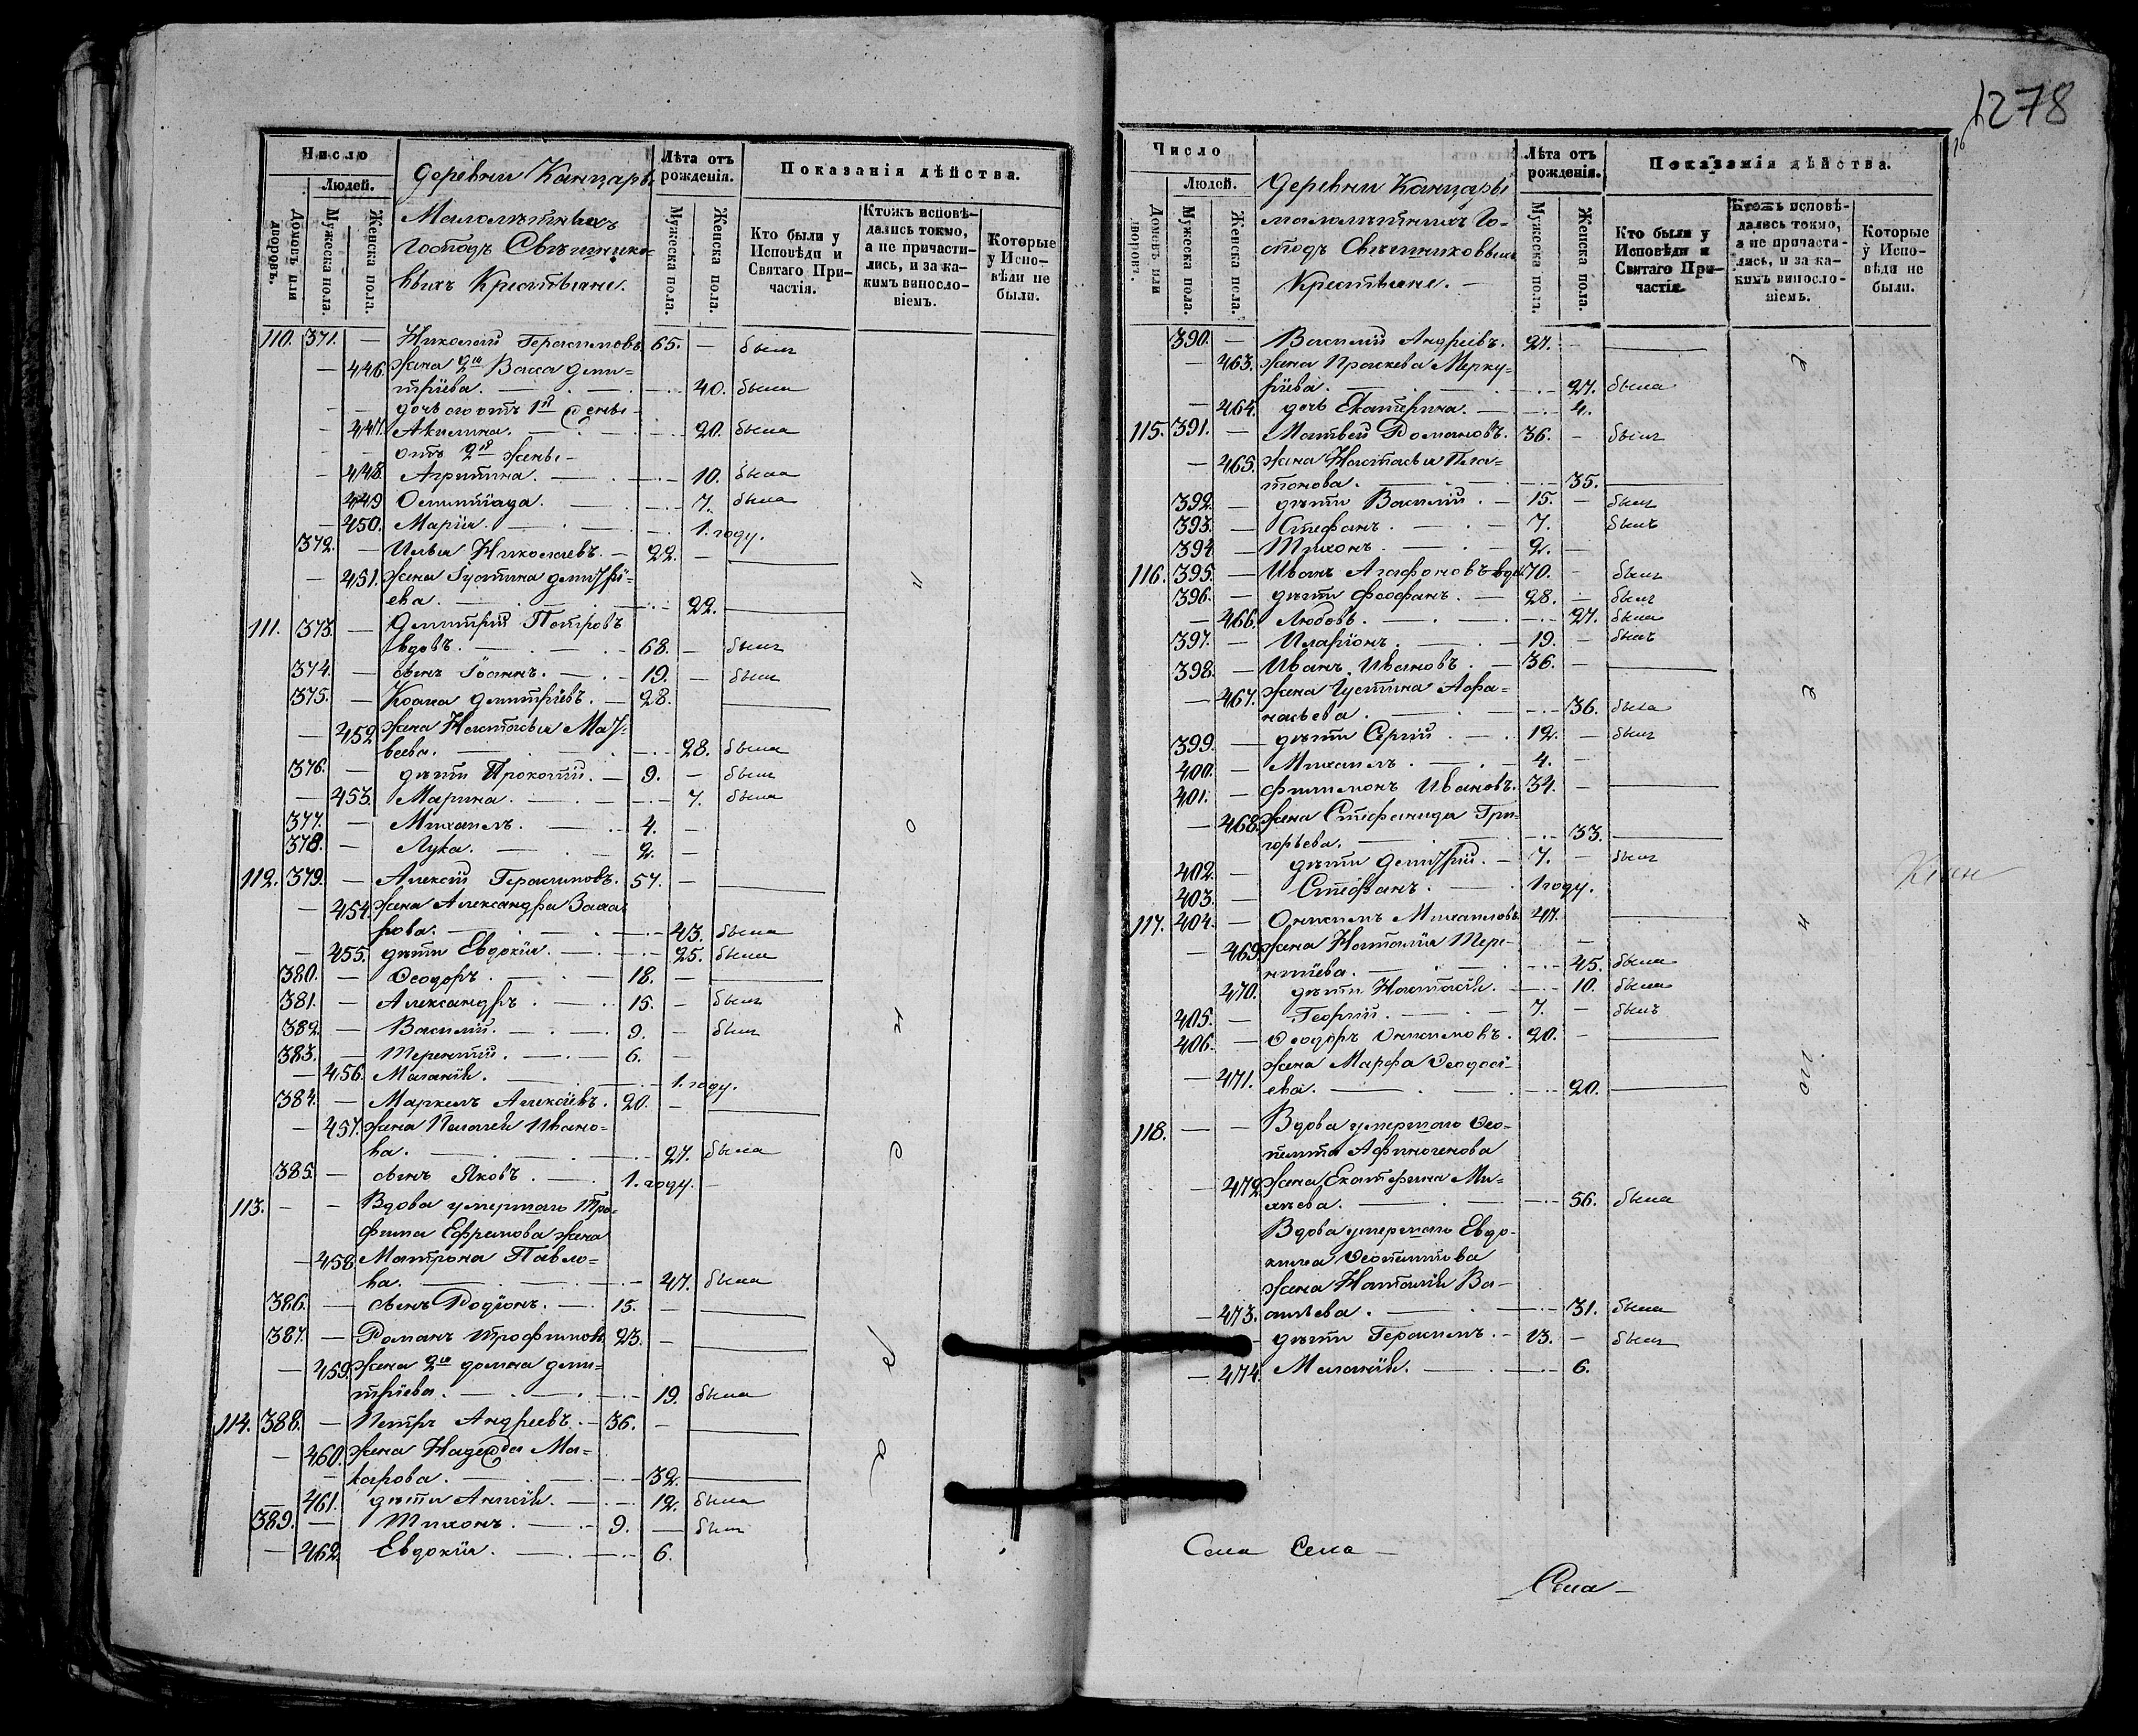 Число
Людей.
Домовъ или дворовъ.
Мужеска пола.
Женска пола.
Деревни Канцары
Малолѣтныхъ
Господъ Свѣшнико-
выхъ Крестьяне.
Лѣта отъ рожденія.
Мужеска пола.
Женска пола.
Показанія дѣйства.
Кто были у Исповѣди и Святаго При-частія.
Ктожъ исповѣ-дались токмо, а не причасти-лись, и за ка-кимъ винословіемъ.
Которые у Испо-вѣди не были.
110. 371. — Николай Герасимовъ 65. — былъ
— 446. Жена 2я Васса Дими-
тріева. — 40. была
дочь его отъ 1й жены
— 447. Акилина. — 20. была
отъ 2й жены
— 448. Агрипина. — 10. была
449 Олимпіада. — 7. была
— 450. Марія. — 1. году.
372. — Илья Николаевъ. — 22. —
— 451. Жена Іустина Димитрі-
ева. — 22.
111. 373. — Димитрій Петровъ
вдовъ. — 68. — былъ
374. — сынъ Іоаннъ. — 19. — былъ
375. — Козма Димитріевъ. — 28.
— 452 Жена Настасья Мат-
веева. — 28. была
376. — дѣти Прокопій. — 9. — былъ
— 453. Марина. — 7. была
377. — Михаилъ. — 4. —
378. — Лука. — 2. —
112. 379. — Алексій Герасимовъ. 57. —
— 454. Жена Александра Заха-
рова. — 43. была
— 455. дѣти Евдокія. — 25. была
380. — Ѳеодоръ. — 18. —
381. — Александръ. — 15. — былъ
382. — Василій. — 9. — былъ
383. — Терентій. — 6. —
— 456. Маланія. — 1. году.
384. — Маркелъ Алексіевъ. 20. —
— 457. Жена Пелагея Ивано-
ва. — 27. была
385. — сынъ Яковъ. — 1. году. —
113. — — Вдова умершаго Тро-
фима Ефремова жена
— 458. Матрона Павло-
ва. — 47. была
386. — сынъ Родіонъ. — 15. —
387. — Романъ Трофимовъ 23. —
— 459. Жена 2я Домна Дими-
тріева. — 19. была
114. 388. — Петръ Андреевъ. — 36. —
— 460. Жена Надежда Ма-
карова. — 32.
461. дѣти Анисія. — 12. была
389. — Тихонъ. — 9. — былъ
— 462 Евдокія. — 6.
1278
Число
Людей.
Домовъ или дворовъ.
Мужеска пола.
Женска пола.
Деревни Канцары
малолѣтныхъ Го-
сподъ Свѣшниковыхъ
Крестьяне. —
Лѣта отъ рожденія.
Мужеска пола.
Женска пола.
Показанія дѣйства.
Кто были у Исповѣди и Святаго При-частія.
Ктожъ исповѣ-дались токмо, а не причасти-лись, и за ка-кимъ винословіемъ.
Которые у Испо-вѣди не были.
390. — Василій Андреевъ. 27. —
— 463. Жена Прасковья Мерку-
ріева. — 27. была
— 464. дочь Екатерина. — 4.
115. 391. — Матвей Романовъ. 36. — былъ
— 465. Жена Настасья Пла-
тонова. — 35.
392. — дѣти Василій. — 15. — былъ
393. — Стефанъ. — 7. былъ
394. — Тихонъ. — 2. —
116. 395. — Иванъ Агафоновъ вдов 70. — былъ
396. — дѣти Феофанъ. — 28. — былъ
— 466. Любовь. — 27. была
397. — Иларіонъ. — 19. — былъ
398. — Иванъ Ивановъ. — 36. —
— 467. Жена Іустина Афа-
насьева. — 36. была
399. — дѣти Сергій. — 12. — былъ
400. — Михаилъ. — 4. —
401. — Филимонъ Ивановъ. 34. —
— 468. Жена Стефанида Гри-
горьева. — 33.
402. — дѣти Димитрій. — 7. — былъ
403. — Стефанъ. — 1 году.
117. 404. — Онисимъ Михаиловъ 47.
— 469. Жена Наталія Тере-
нтіева. — 45. была
470. дѣти Настасія. — 10. была
405. — Георгій. — 7. — былъ
406. — Ѳеодоръ Онисимовъ. 20. —
— 471. Жена Марфа Ѳеодосі-
ева. — 20.
118. — — Вдова умершаго Ѳео-
пемпта Афиногенова
— 472. Жена Екатерина Ми-
хеева. — 56. была
Вдова умершаго Евдо-
кима Ѳеопемптова
Жена Наталія Ва-
— 473. сильева. — 31. была
дѣти Герасимъ. — 13. — былъ
— 474. Маланія. — 6.
Села Села —
Села —